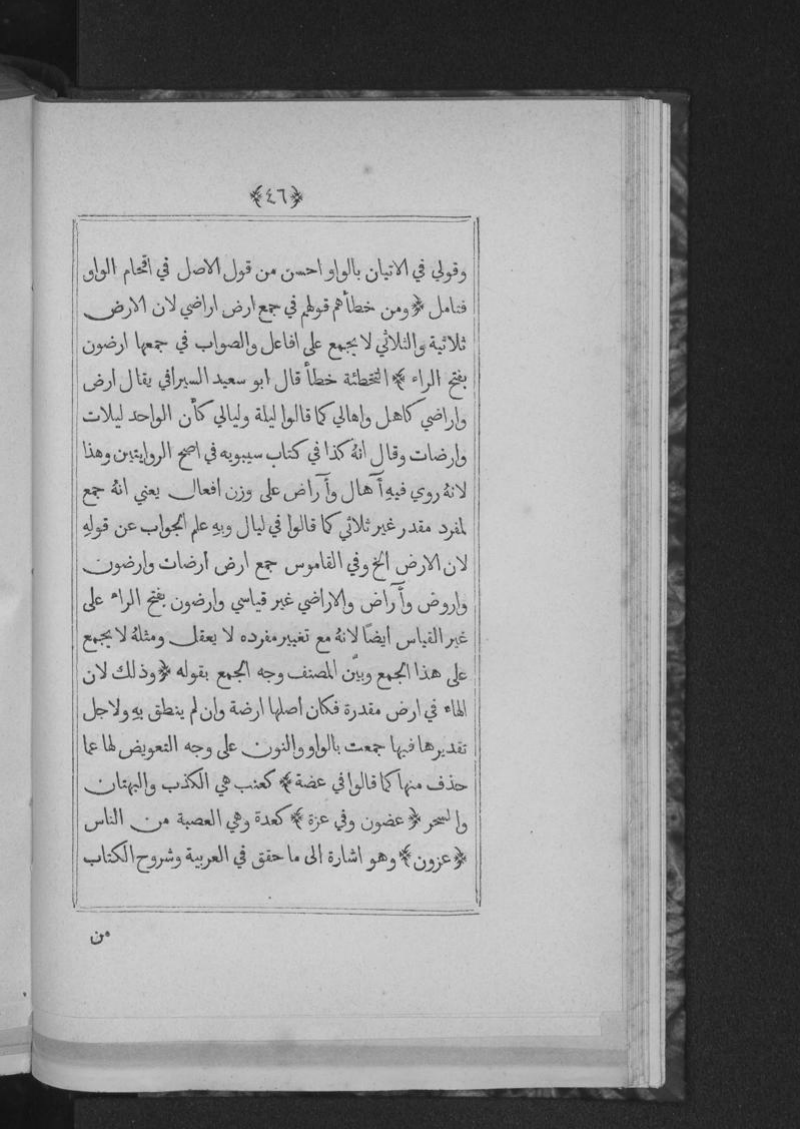 ﴿٤٦﴾
وقولي في الاتيان بالواو احسن من قول الاصل في اقحام الواو
فتامل ﴿ومن خطأهم قولهم في جمع ارض اراضي لان الارض
ثلاثية والثلاثي لا يجمع على افاعل والصواب في جمعها ارضون
بفتح الراء﴾ التخطئة خطأ قال ابو سعيد السيرافي يقال ارض
واراضي كاهل واهالي كما قالوا ليلة وليالي كأن الواحد ليلات
وارضات وقال انهُ كذا في كتاب سيبويه في اصح الروايتين وهذا
لانهُ روي فيهِ آهال وآراض على وزن افعال يعني انهُ جمع
لمفرد مقدر غير ثلاثي كما قالوا في ليال وبهِ علم الجواب عن قولهِ
لان الارض الخ وفي القاموس جمع ارض أرضات وارضون
واروض وآراض والاراضي غير قياسي وارضون بفتح الراء على
غير القياس ايضًا لانهُ مع تغيير مفرده لا يعقل ومثلهُ لا يجمع
على هذا الجمع وبيَّن المصنف وجه الجمع بقوله ﴿وذلك لان
الهاء في ارض مقدرة فكان اصلها ارضة وان لم ينطق بهِ ولاجل
تقديرها فيها جمعت بالواو والنون على وجه التعويض لها عما
حذف منها كما قالوا في عضة﴾ كعنب هي الكذب والبهتان
والسحر ﴿عضون وفي عزة﴾ كعدة وهي العصبة من الناس
﴿عزون﴾ وهو اشارة الى ما حقق في العربية وشروح الكتاب
من